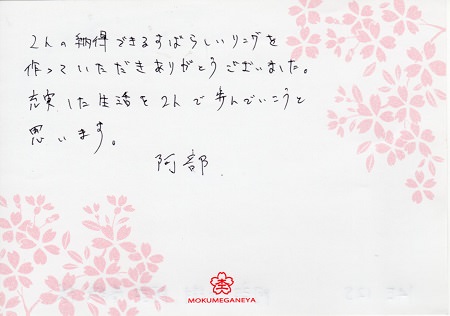 2人の納得できるすばらしいリングを
作っていただきありがとうございました。
充実した生活を2人で歩んでいこうと
思います。
阿部
MOKUMEGANEYA